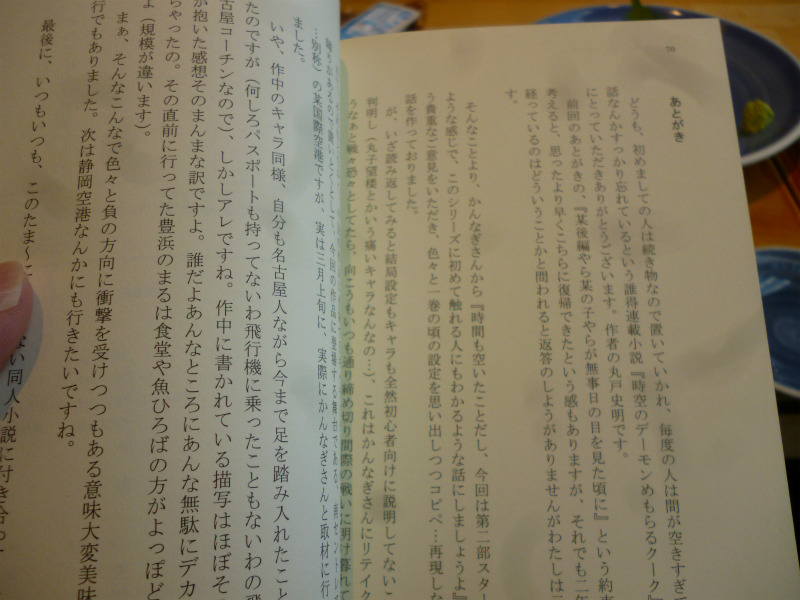 70
あとがき
どうも、初めましての人は続き物なので置いていかれ、毎度の人は間が空きすぎて
話なんかすっかり忘れているという誰得連載小説『時空のデーモンめもらるクーク』
にとっていただきありがとうございます。作者の丸戸史明です。
前回のあとがきの、『某後編やら某の子やらが無事日の目を見た頃に』という約束
考えると、思ったより早くこちらに復帰できたという感もありますが、それでも二年
経っているのはどういうことかと問われると返答のしようがありませんがわたしは二
す。
そんなことより、かんなぎさんから『時間も空いたことだし、今回は第二部スター
ような感じで、このシリーズに初めて触れる人にもわかるような話にしましょうよ』
う貴重なご意見をいただき、色々と一巻の頃の設定を思い出しつつコピペ…再現しな
話を作っておりました。
が、いざ読み返してみると結局設定もキャラも全然初心者向けに説明してないこ
判明し（丸子望楼とかいう痛いキャラなんなの…）、これはかんなぎさんにリテイク
うなぁと戦々恐々としてたら、向こうもいつも通り締め切り間際の戦いに明け暮れて
今回の作品に登場する舞台である、
…別称）の某国際空港ですが、実は三月上旬に、実際にかんなぎさんと取材に行
ました。
いや、作中のキャラ同様、自分も名古屋人ながら今まで足を踏み入れたこと
たのですが（何しろパスポートも持ってないわ飛行機に乗ったこともないわの飛
古屋コーチンなので）、しかしアレですね。作中に書かれている描写はほぼそ
が抱いた感想そのまんまな訳ですよ。誰だよあんなところにあんな無駄にデカ
ちゃったの。その直前に行ってた豊浜のまるは食堂や魚ひろばの方がよっぽど
よ（規模が違います）。
まぁ、そんなこんなで色々と負の方向に衝撃を受けつつもある意味大変美味
行でもありました。次は静岡空港なんかにも行きたいですね。
最後に、いつもいつも、このたま～に
ない同人小説に付き合っ